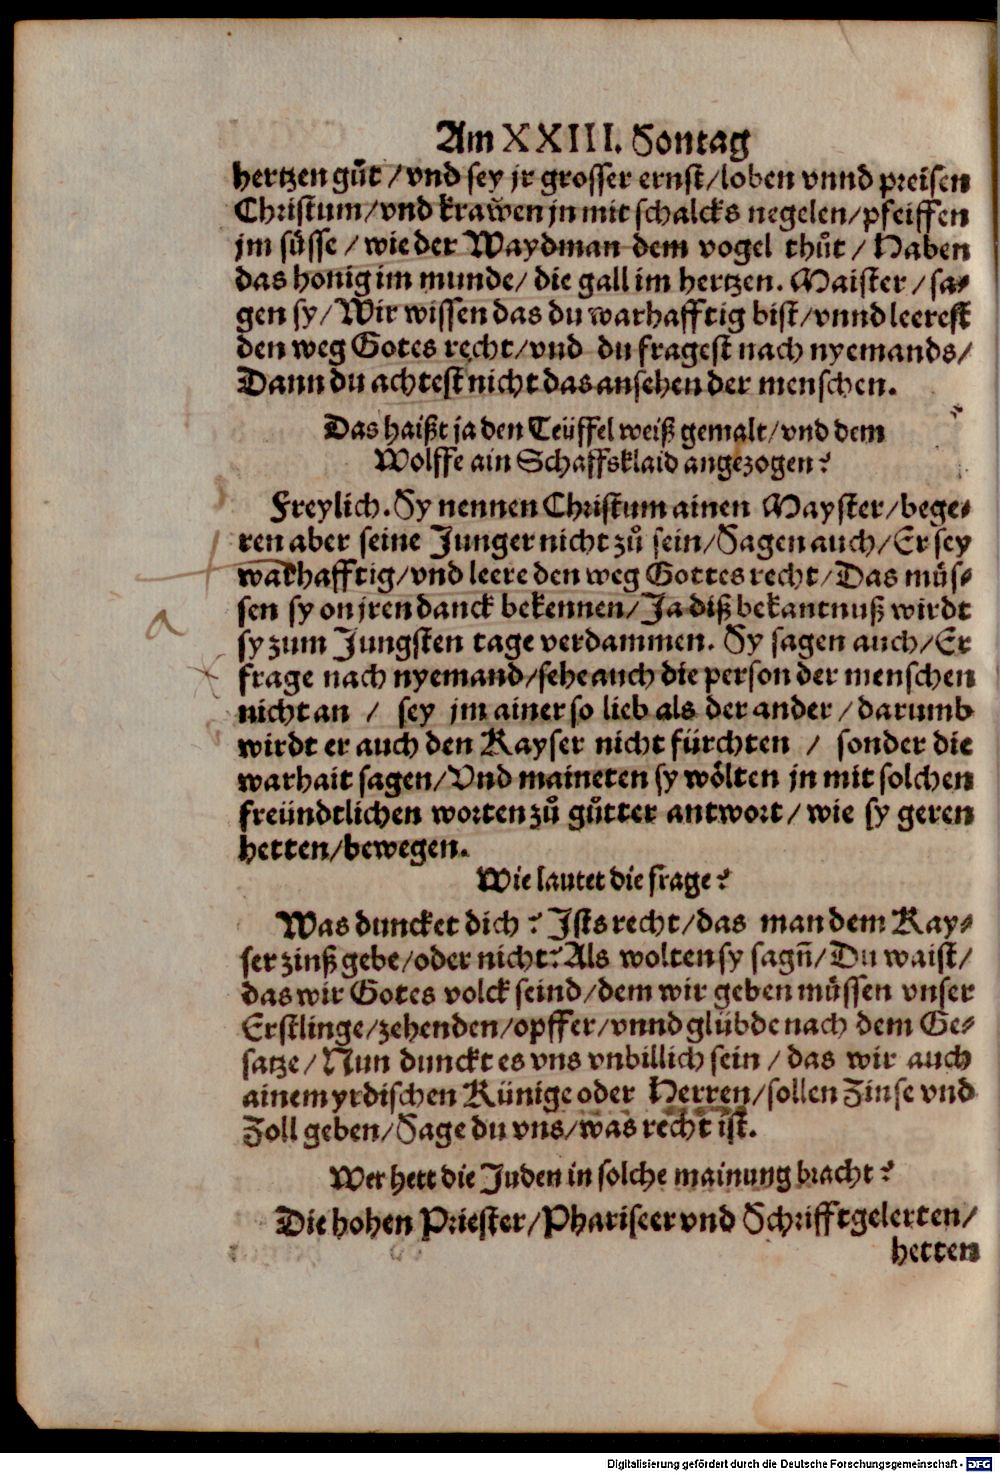 Am XXIII. Sontag
hertzen gůt / vnd sey jr grosser ernst / loben vnnd preisen
Christum / vnd krawen jn mit schalcks negelen / pfeiffen
jm süsse / wie der Waydman dem vogel thůt / Haben
das honig im munde / die gall im hertzen. Maister / sa-
gen sy / Wir wissen das du warhafftig bist / vnnd leerest
den weg Gotes recht / vnd du fragest nach nyemands /
Dann du achtest nicht das ansehen der menschen.
Das haißt ja den Teüffel weiß gemalt / vnd dem
Wolffe ain Schaffsklaid angezogen?
Freylich. Sy nennen Christum ainen Mayster / bege-
ren aber seine Junger nicht zů sein / Sagen auch / Er sey
warhafftig / vnd leere den weg Gottes recht / Das müs-
sen sy on jren danck bekennen / Ja diß bekantnuß wirdt
sy zum Jungsten tage verdammen. Sy sagen auch / Er
frage nach nyemand / sehe auch die person der menschen
nicht an / sey jm ainer so lieb als der ander / darumb
wirdt er auch den Kayser nicht fürchten / sonder die
warhait sagen / Vnd maineten sy wölten jn mit solchen
freündtlichen worten zů gůtter antwort / wie sy geren
hetten / bewegen.
Wie lautet die frage?
Was duncket dich? Ists recht / das man dem Kay-
ser zinß gebe / oder nicht? Als wolten sy sagn̄ / Du waist /
das wir Gotes volck seind / dem wir geben müssen vnser
Erstlinge / zehenden / opffer / vnnd glübde nach dem Ge-
satze / Nun dunckt es vns vnbillich sein / das wir auch
ainem yrdischen Künige oder Herren / sollen Zinse vnd
Zoll geben / Sage du vns / was recht ist.
Wer hett die Juden in solche mainung bracht?
Die hohen Priester / Phariseer vnd Schrifftgelerten /
hetten
a
Digitalisierung gefördert durch die Deutsche Forschungsgemeinschaft - DFG